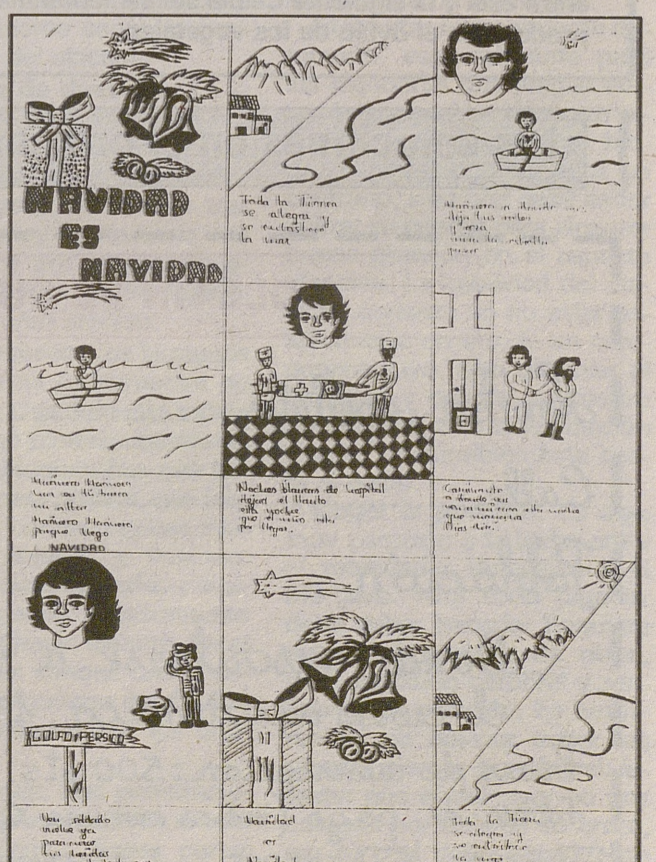 NAVIDAD
ES
NAVIDAD
Toda la Tierra
se alegra y
se entristece
la mar
Marinero a donde vas
deja tus redes
y reza
mira la estrella
pasar
Marinero Marinero
haz en tu barca
un altar
Marinero Marinero
porque llego
NAVIDAD
Noches blancas de hospital
dejad el llanto
esta noche
que el niño está
por llegar.
Caminante
a donde vas
ven a mi casa esta noche
que mañana
Dios dirá.
GOLFO PERSICO
Ven soldado
vuelve ya
para curar
tus heridas
Navidad
es
Toda la Tierra
se alegra y
se entristece
la mar